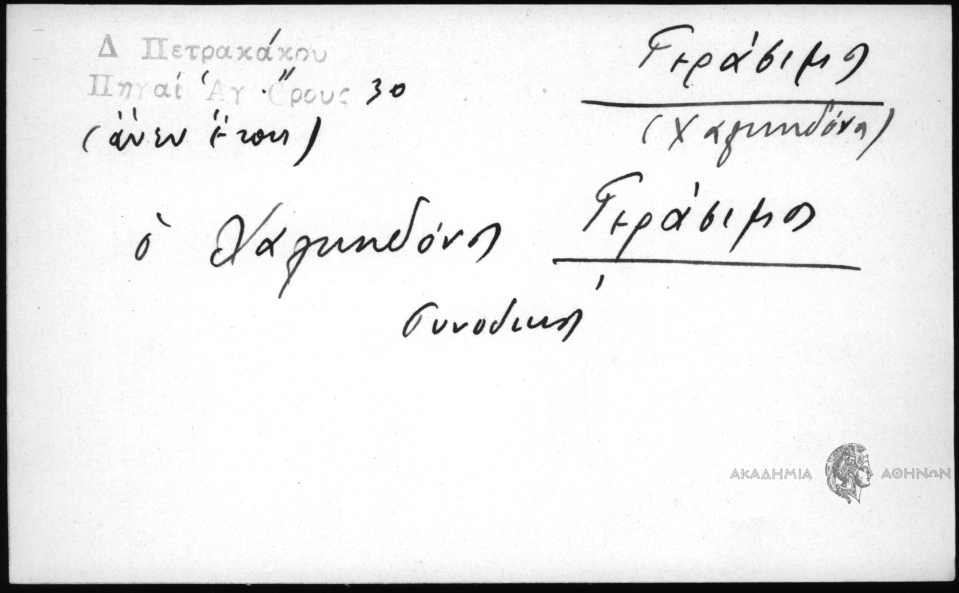 Δ Πετρακάκου
Πηγαί Ἁγ. Ὄρους 30
(ἄνευ ἔτους)
Γεράσιμος
(Χαλκηδόνος)
ὁ Χαλκηδόνος Γεράσιμος
Συνοδικός
ΑΚΑΔΗΜΙΑ ΑΘΗΝΩΝ